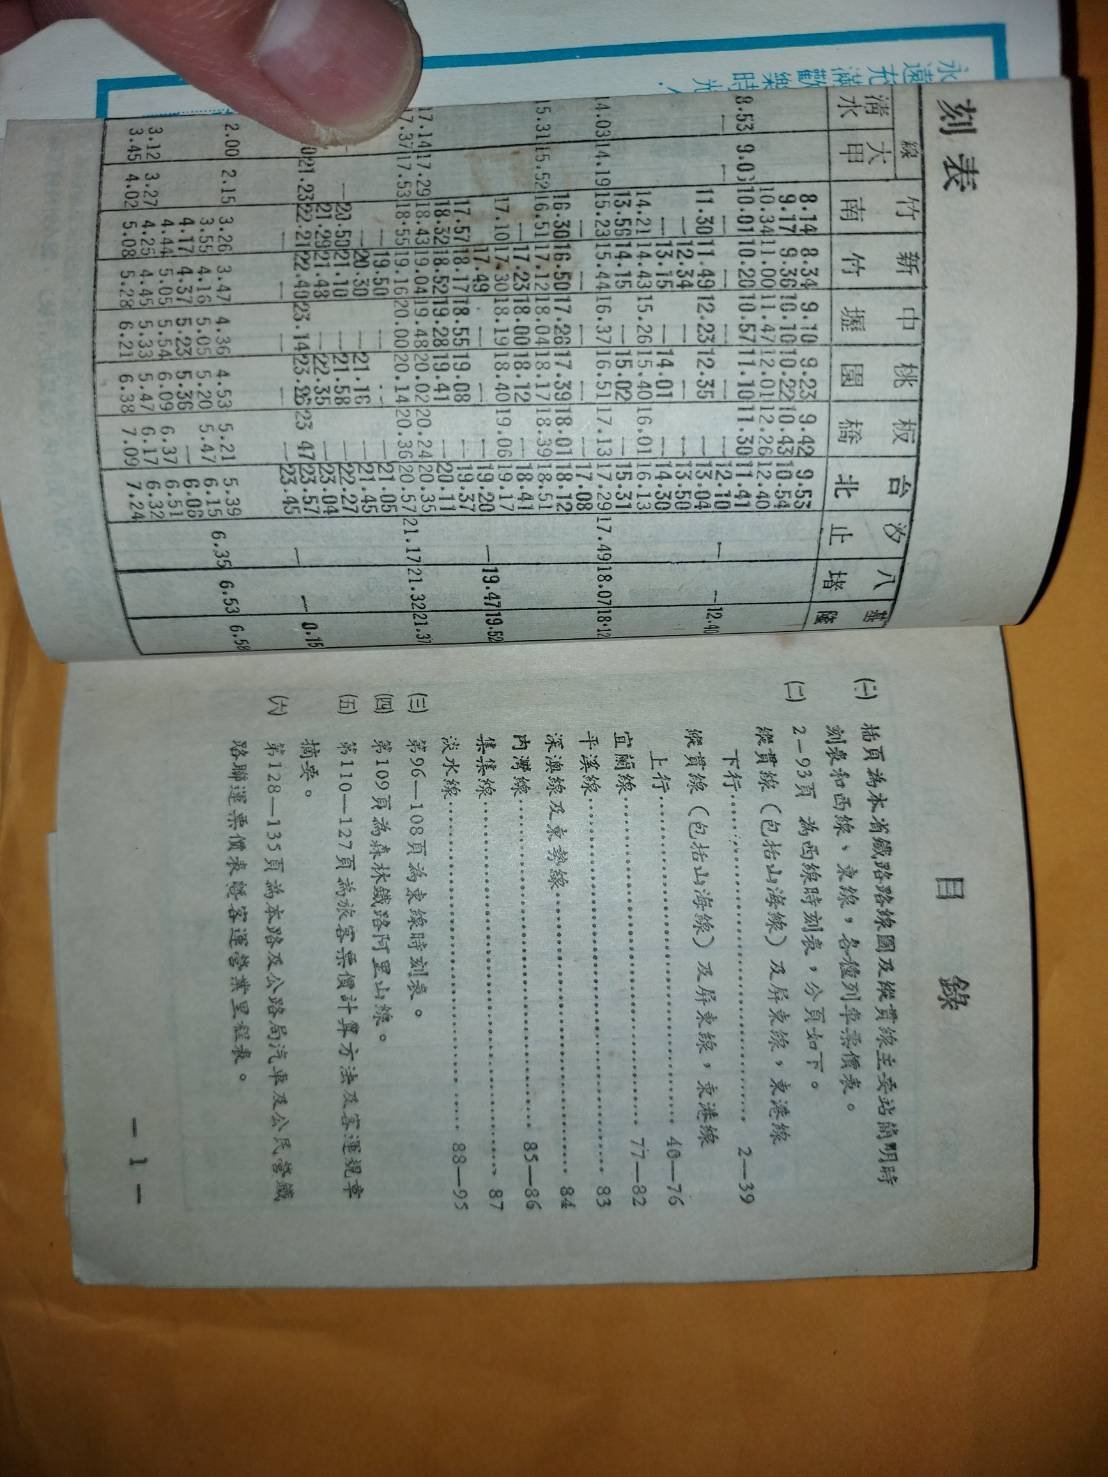 永遠充滿歡樂時光
刻表
線 竹 新 中 桃 板 台 汐 八 基
清水 大甲 南 竹 壢 園 橋 北 止 堵 隆
8.14 8.34 9.10 9.23 9.42 9.53
9.17 9.36 10.10 10.22 10.43 10.54
10.34 11.00 11.47 12.01 12.26 12.40
8.53 9.0 10.01 10.20 10.57 11.10 11.30 11.41
— — — — — — — 12.10 — — 12.40
11.30 11.49 12.23 12.35 — 13.04
— 12.34 — — — 13.50
— 13.15 — 14.01 — 14.30
14.21 14.43 15.26 15.40 16.01 16.13
13.56 14.15 — 15.02 — 15.31
14.03 14.19 15.23 15.44 16.37 16.51 17.13 17.29 17.49 18.07 18.12
— — — — — 17.08
16.30 16.50 17.26 17.39 18.01 18.12
15.31 15.52 16.51 17.12 18.04 18.17 18.39 18.51
— 17.23 18.00 18.12 — 18.41
17.10 17.30 18.19 18.40 19.06 19.17
— 17.49 — — — 19.20 — 19.47 19.52
17.57 18.17 18.55 19.08 — 19.37
18.32 18.52 19.28 19.41 — 20.11
17.14 17.29 18.43 19.04 19.48 20.02 20.24 20.35
17.37 17.53 18.55 19.16 20.00 20.14 20.36 20.57 21.17 21.32 21.37
— 19.50 — — — 21.05
— 20.30 — 21.16 — 21.45
— 20.50 21.10 — 21.58 — 22.27
21.29 21.48 — 22.35 — 23.04
21.23 22.21 22.40 23.14 23.26 23 47 23.57 — — 0.15
— — — — — 23.45
2.00 2.15 3.26 3.47 4.36 4.53 5.21 5.39 6.35 6.53 6.58
3.55 4.16 5.05 5.20 5.47 6.15
4.17 4.37 5.23 5.36 — 6.08
3.12 3.27 4.44 5.05 5.54 6.09 6.37 6.51
4.25 4.45 5.33 5.47 6.17 6.32
3.45 4.02 5.08 5.28 6.21 6.38 7.09 7.24
目 錄
(一) 插頁為本省鐵路路線圖及縱貫線主要站簡明時
刻表和西線、東線,各種列車票價表。
(二) 2—93頁 為西線時刻表,分頁如下。
縱貫線(包括山海線)及屏東線,東港線
下行 2—39
縱貫線(包括山海線)及屏東線,東港線
上行 40—76
宜蘭線 77—82
平溪線 83
深澳線及東勢線 84
內灣線 85—86
集集線 87
淡水線 88—95
(三) 第96—108頁為東線時刻表。
(四) 第109頁為森林鐵路阿里山線。
(五) 第110—127頁為旅客票價計算方法及客運規章
摘要。
(六) 第128—135頁為本路及公路局汽車及公民營鐵
路聯運票價表暨客運營業里程表。
— 1 —